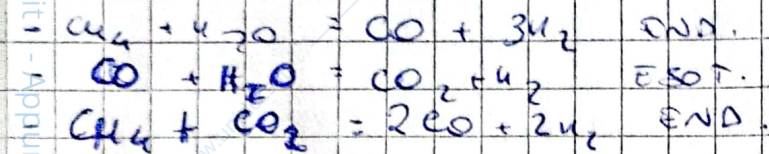 - CH4 + H2O = CO + 3H2 END.
- CO + H2O = CO2 + H2 ESOT.
- CH4 + CO2 = 2CO + 2H2 END.